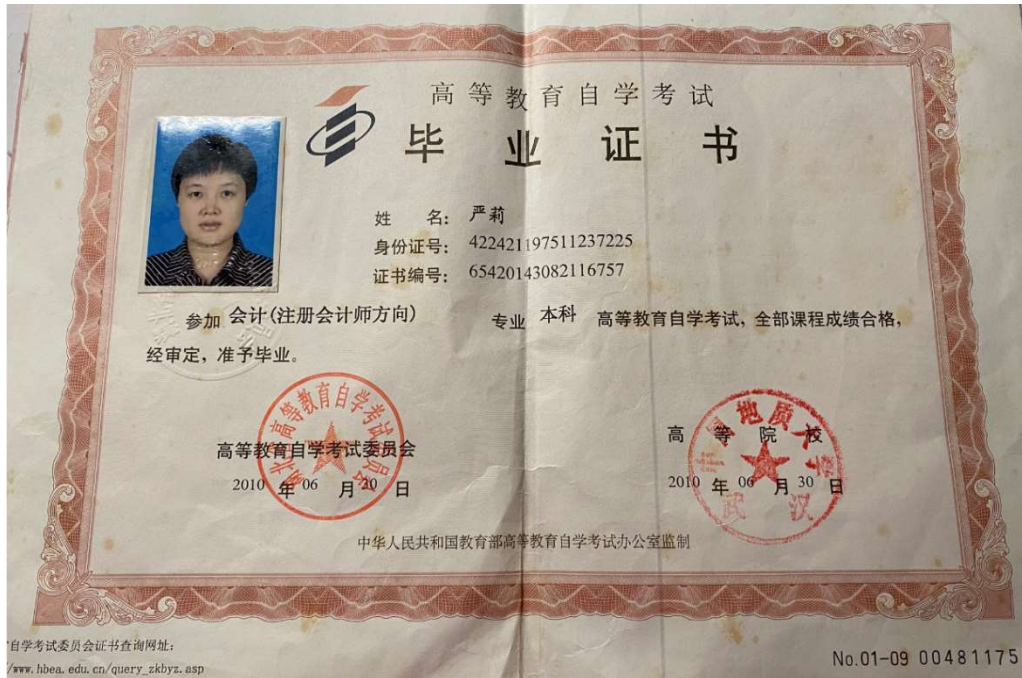 高等教育自学考试
毕业证书
姓 名: 严莉
身份证号: 422421197511237225
证书编号: 65420143082116757
参加 会计(注册会计师方向) 专业 本科 高等教育自学考试,全部课程成绩合格,
经审定,准予毕业。
湖北省高等教育自学考试委员会
高等教育自学考试委员会
2010 年 06 月 20 日
地质大学
武汉
高等院校
2010 年 06 月 30 日
中华人民共和国教育部高等教育自学考试办公室监制
自学考试委员会证书查询网址:
/www.hbea.edu.cn/query_zkbyz.asp
No.01-09 00481175